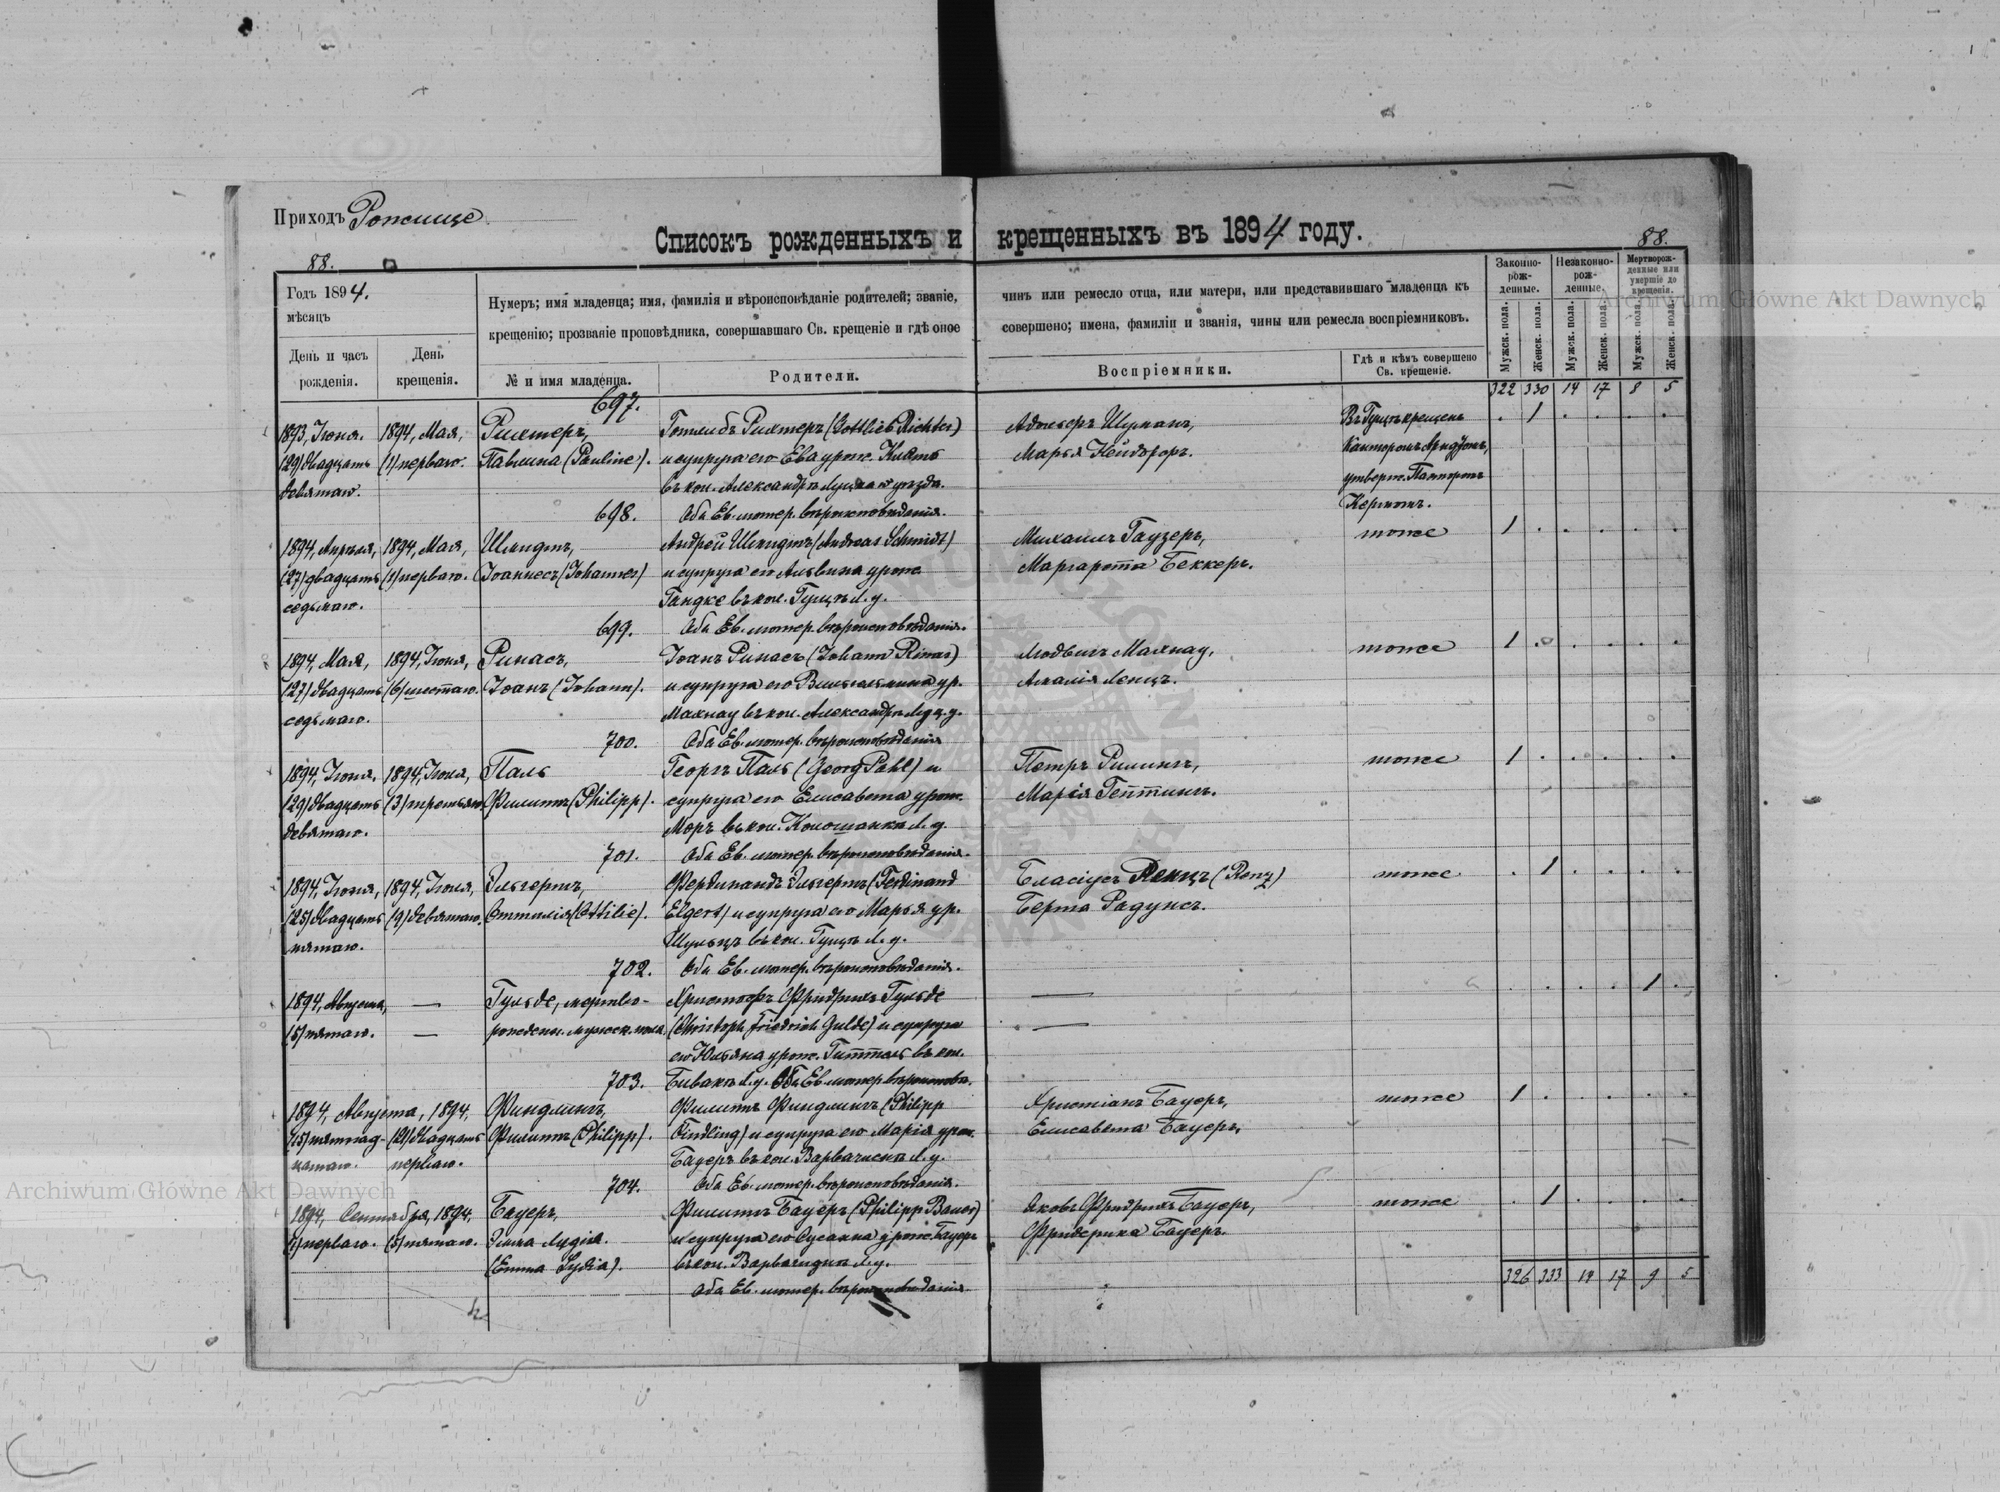 Приходъ Рожище
Списокъ рожденныхъ и крещенныхъ въ 1894 году.
88.
88.
Годъ 1894.
мѣсяцъ
День и часъ рожденія.
День крещенія.
Нумеръ; имя младенца; имя, фамилія и вѣроисповѣданіе родителей; званіе, чинъ или ремесло отца, или матери, или представившаго младенца къ
крещенію; прозваніе проповѣдника, совершавшаго Св. крещеніе и гдѣ оное совершено; имена, фамиліи и званія, чины или ремесла воспріемниковъ.
№ и имя младенца.
Родители.
Воспріемники.
Гдѣ и кѣмъ совершено Св. крещеніе.
Законно-рож-денные.
Незаконно-рож-денные.
Мертворож-денные или умершіе до крещенія.
Мужск. пола. Женск. пола. Мужск. пола. Женск. пола. Мужск. пола. Женск. пола.
322 330 14 17 8 5
697.
1893, Іюня. 1894, Мая, Рихтеръ, Готлибъ Рихтеръ (Gottlieb Richter) Адольфъ Шуманъ, Въ Гущѣ крещенъ . 1 . . . .
(29) двадцать (1) перваго. Павлина (Pauline). и супруга его Ева урож. Марья Нейдорфъ. Канторомъ
девятаго. въ кол. Александр. Луцкаго уѣзда. утверж. Пасторомъ
698. Оба Ев. лютер. вѣроисповѣданія. Кернтъ.
1894, Апрѣля, 1894, Мая, Шмидтъ, Андрей Шмидтъ (Andreas Schmidt) Михаилъ Гаузеръ, тоже 1 . . . . .
(27) двадцать (1) перваго. Іоаннесъ (Johannes) и супруга его Альвина урож. Маргарета Беккеръ.
седьмаго. Гандке въ кол. Гущѣ Л. у.
699. Оба Ев. лютер. вѣроисповѣданія.
1894, Мая, 1894, Іюня, Ринасъ, Іоанъ Ринасъ (Johann Rinas) Людвигъ Махнау, тоже 1 . . . . .
(27) двадцать (6) шестаго. Іоанъ (Johann). и супруга его Вильгельмина ур. Амалія Ленцъ.
седьмаго. Махнау въ кол. Александр. Луц. у.
700. Оба Ев. лютер. вѣроисповѣданія
1894, Іюня, 1894, Іюля, Паль Георгъ Паль (Georg Pahl) и Петръ Рилингъ, тоже 1 . . . . .
(29) двадцать (3) третьяго Филиппъ (Philipp). супруга его Елисавета урож. Марія Геттингъ.
девятаго. Моръ въ кол. Копошанка Л. у.
701. Оба Ев. лютер. вѣроисповѣданія.
1894, Іюня, 1894, Іюля, Эльгертъ, Фердинандъ Эльгертъ (Ferdinand Бласіусъ Ренцъ (Renz) тоже . 1 . . . .
(25) двадцать (9) девятаго. Оттилія (Ottilie). Elgert) и супруга его Марья ур. Берта Радунсъ.
пятаго. Шульцъ въ кол. Гущѣ Л. у.
702. Оба Ев. лютер. вѣроисповѣданія.
1894, Августа, — Гульде, мертво- Христофъ Фридрихъ Гульде — . . . . 1 .
(5) пятаго. — рожденн. мужск. пола. (Christoph Friedrich Gulde) и супруга —
его Юльяна урож. Гиттель въ кол.
703. Бивакъ Л. у. Оба Ев. лютер. вѣроисповѣд.
1894, Августа, 1894, Финдлингъ, Филиппъ Финдлингъ (Philipp Христіанъ Бауеръ, тоже 1 . . . . .
(15) пятнад- (21) двадцать Филиппъ (Philipp). Findling) и супруга его Марія урож. Елисавета Бауеръ.
цатаго. перваго. Бауеръ въ кол. Л. у.
704. Оба Ев. лютер. вѣроисповѣданія.
1894, Сентября, 1894, Бауеръ, Филиппъ Бауеръ (Philipp Bauer) Яковъ Фридрихъ Бауеръ, тоже . 1 . . . .
(1) перваго. (5) пятаго. Эмма Лидія. и супруга его Сусанна урож. Бауеръ Фридерика Бауеръ.
(Emma Lydia). въ кол. Л. у.
Оба Ев. лютер. вѣроисповѣданія
326 333 14 17 9 5
Archiwum Główne Akt Dawnych
Archiwum Główne Akt Dawnych